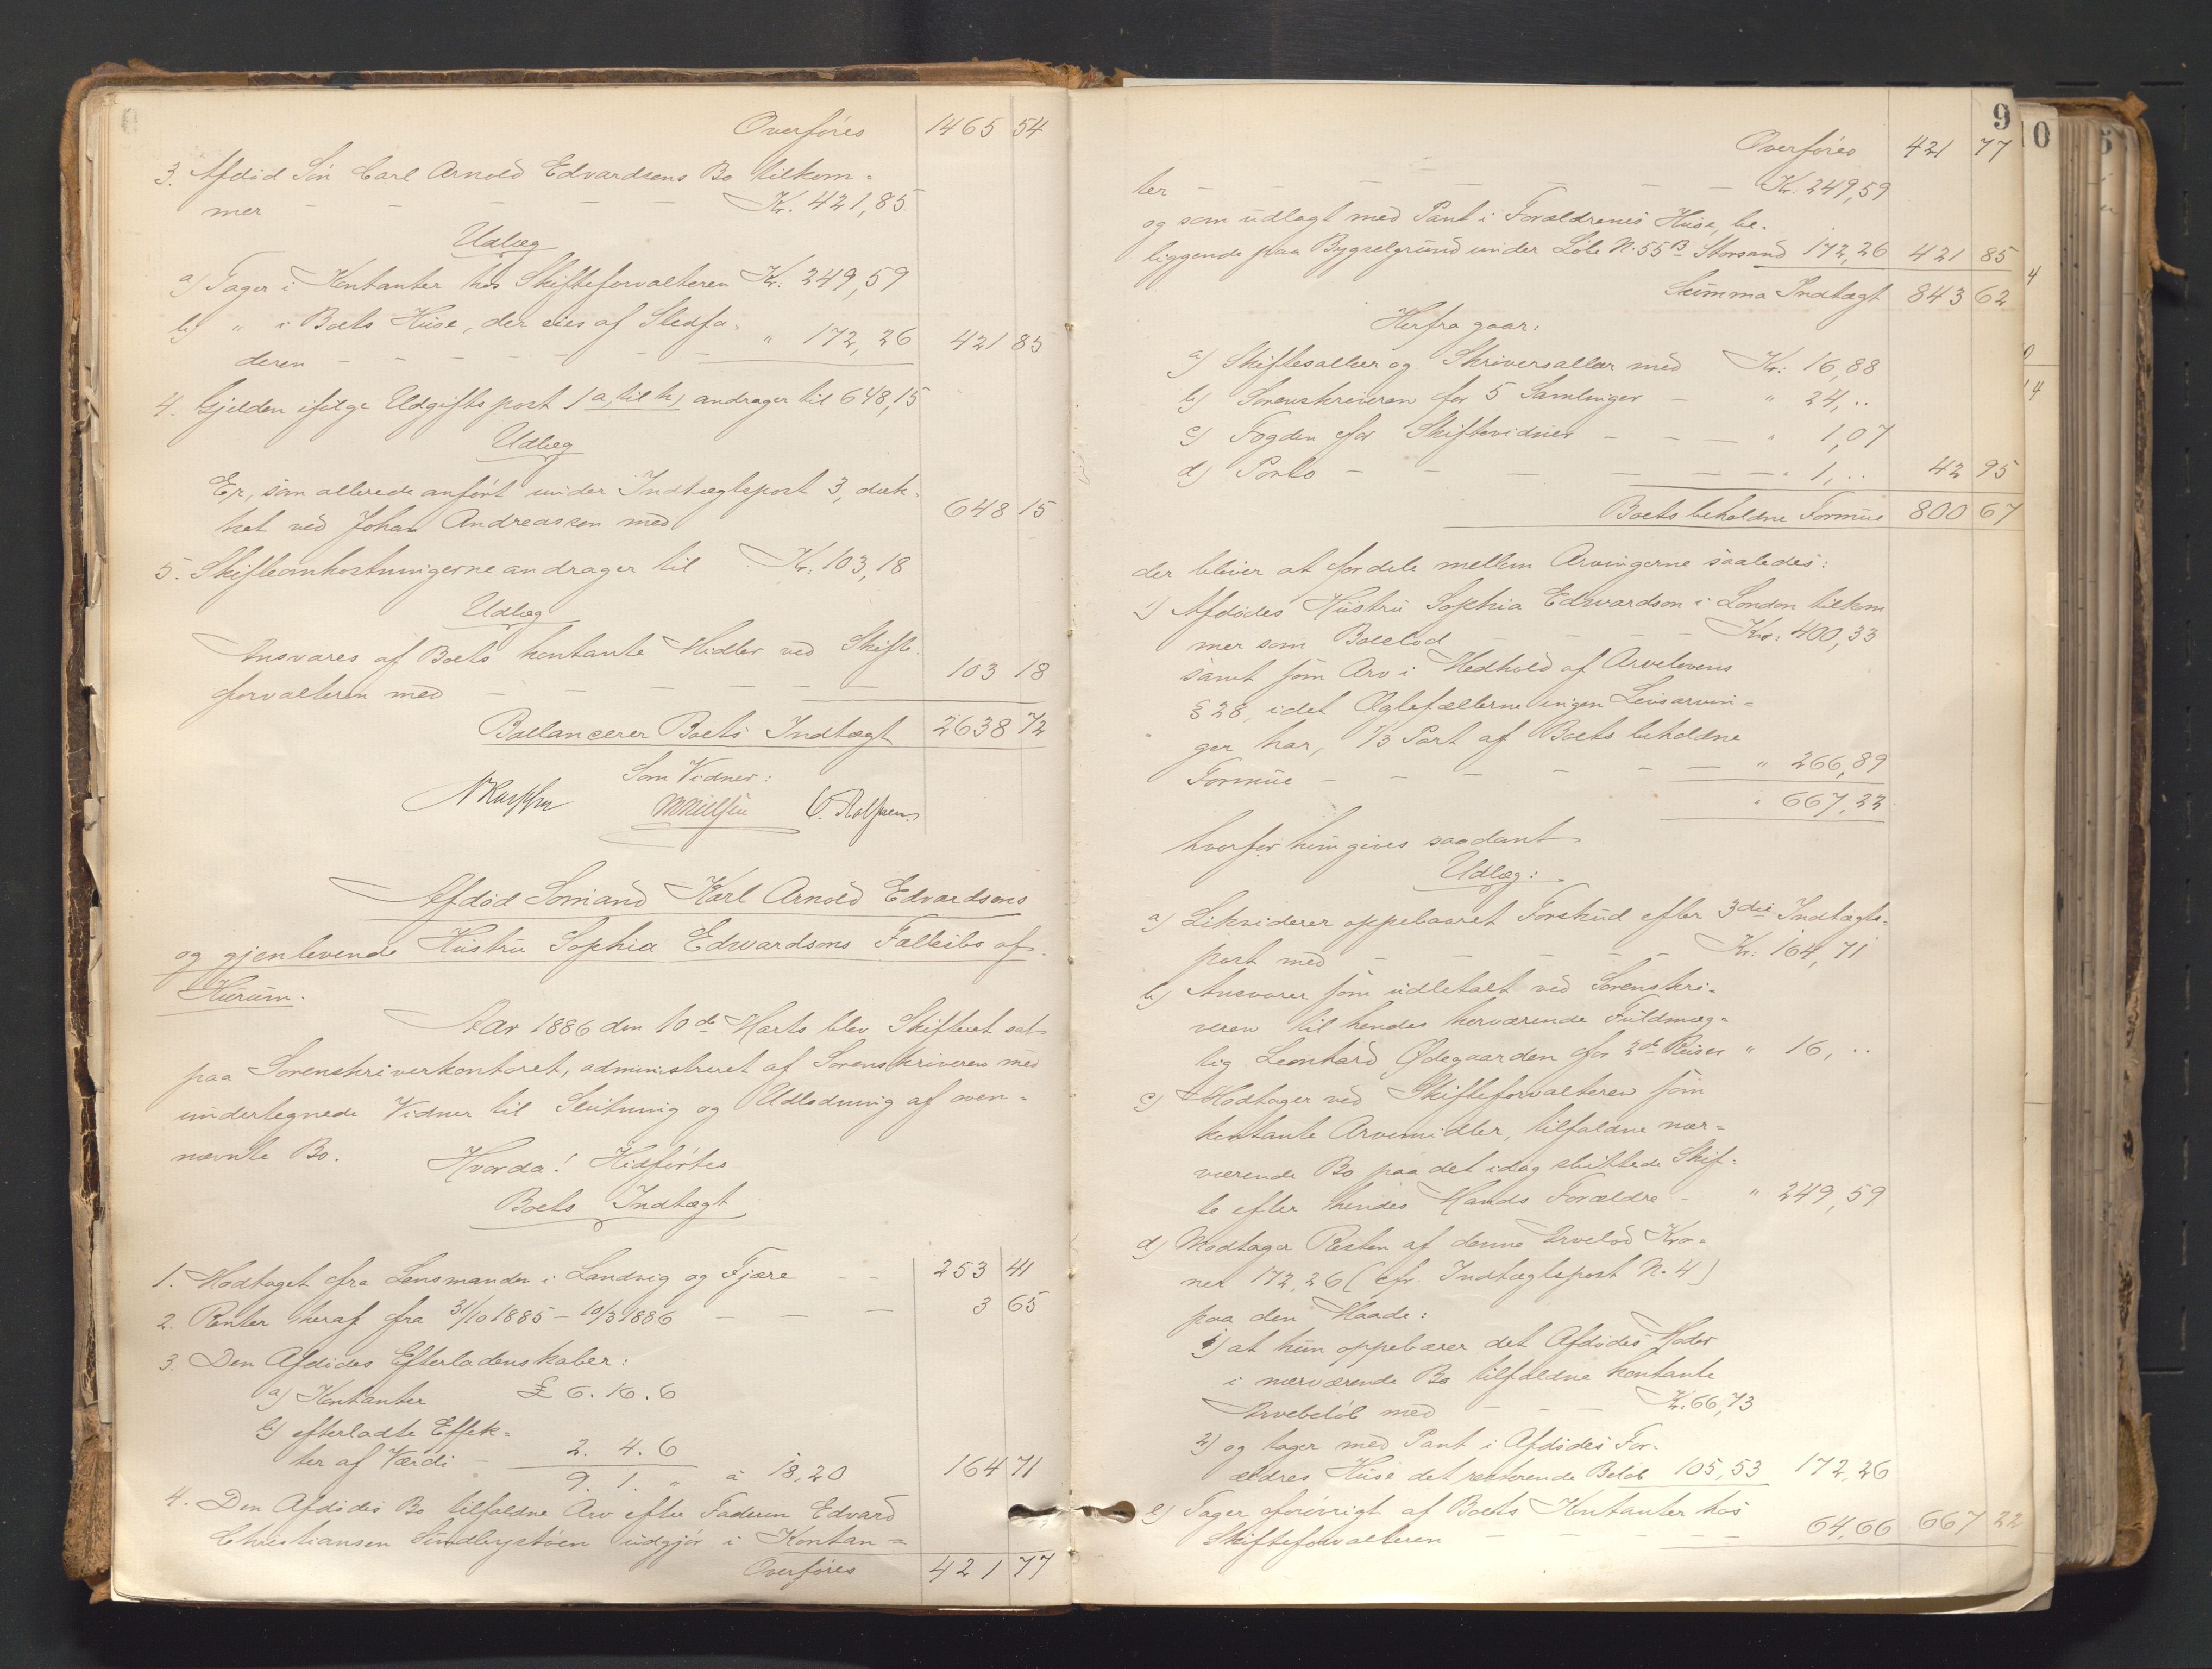 Overføres 1465 54
3. Afdød Søn Carl Arnold Edvardsens Bo tilkom=
mer - - - - - - Kr. 421,85
Udlæg
a) Tager i Kontanter hos Skifteforvalteren Kr. 249,59
b) " i Boets Huse, der eies af Stedfa=
deren - - - - - - - " 172,26 421 85
4. Gjelden ifølge Udgiftspost 1 a, til h, andrager til 648,15
Udlæg
Er, som allerede anført under Indtægtspost 3, dæk-
ket ved Johan Andreassen med 648 15
5. Skifteomkostningerne andrager til Kr. 103,18
Udlæg
Ansvares af Boets kontante Midler ved Skifte-
forvalteren med - - - - - - 103 18
Ballancerer Boets Indtægt 2638 72
Som Vidner:
Afdød Sømand Karl Arnold Edvardsens
og gjenlevende Hustru Sophia Edwardsons Fællesbo af
Hurum.
Aar 1886 den 10de Marts blev Skifteret sat
paa Sorenskriverkontoret, administreret af Sorenskriveren med
undertegnede Vidner til Slutning og Udlodning af oven=
nævnte Bo.
Hvorda! Hidførtes
Boets Indtægt
1. Modtaget fra Lensmanden i Landvig og Fjære - - 253 41
2. Renter heraf fra 31/10 1885 - 10/3 1886 - - - 3 65
3. Den Afdødes Efterladenskaber:
a) Kontanter £ 6. 16. 6
b) efterladte Effek=
ter af Værdi - 2. 4. 6
9. 1. " à 18,20 164 71
4. Den Afdødes Bo tilfaldne Arv efter Faderen Edvard
Christiansen Sundbystøen udgjør i Kontan=
Overføres 421 77
9
Overføres 421 77
ter - - - - - - - Kr. 249,59
og som udlagt med Pant i Forældrenes Huse, be-
liggende paa Bygselgrund under Løbe N. 55 B Storsand 172,26 421 85
Summa Indtægt 843 62
Herfra gaar:
a) Skiftesallær og Skriversallær med Kr. 16,88
b) Sorenskriveren for 5 Samlinger - " 24, ..
c) Fogden for Skiftevidner - - - " 1,07
d) Porto - - - - - - " 1, .. 42 95
Boets beholdne Formue 800 67
der bliver at fordele mellem Arvingerne saaledes:
1) Afdødes Hustru Sophia Edwardson i London tilkom
mer som Boeslod - - - - Kr. 400,33
samt som Arv i Medhold af Arvelovens
§ 28, idet Ægtefællerne ingen Livsarvin=
ger har, 1/3 Part af Boets beholdne
Formue - - - - - - " 266,89
" 667,22
hvorfor hun gives saadant
Udlæg:
a) Likviderer oppebaaret Forskud efter 3die Indtægts=
post med - - - - - Kr. 164,71
b) Ansvarer som udbetalt ved Sorenskri=
veren til hendes herværende Fuldmæg=
tig Leonhard Ødegaarden for 2de Reiser " 16, ..
c) Modtager ved Skifteforvalteren som
kontante Arvemidler, tilfaldne nær=
værende Bo paa det idag sluttede Skif=
te efter hendes Mands Forældre - " 249,59
d) Modtager Resten af denne Arvelod Kro=
ner 172,26 (cfr. Indtægtspost N. 4)
paa den Maade:
1) at hun oppebærer det Afdødes Moder
i nærværende Bo tilfaldne kontante
Arvebeløb med - - - Kr. 66,73
2) og tager med Pant i Afdødes For-
ældres Huse det resterende Beløb 105,53 172,26
e) Tager forøvrigt af Boets Kontanter hos
Skifteforvalteren - - - - - 64,66 667 22